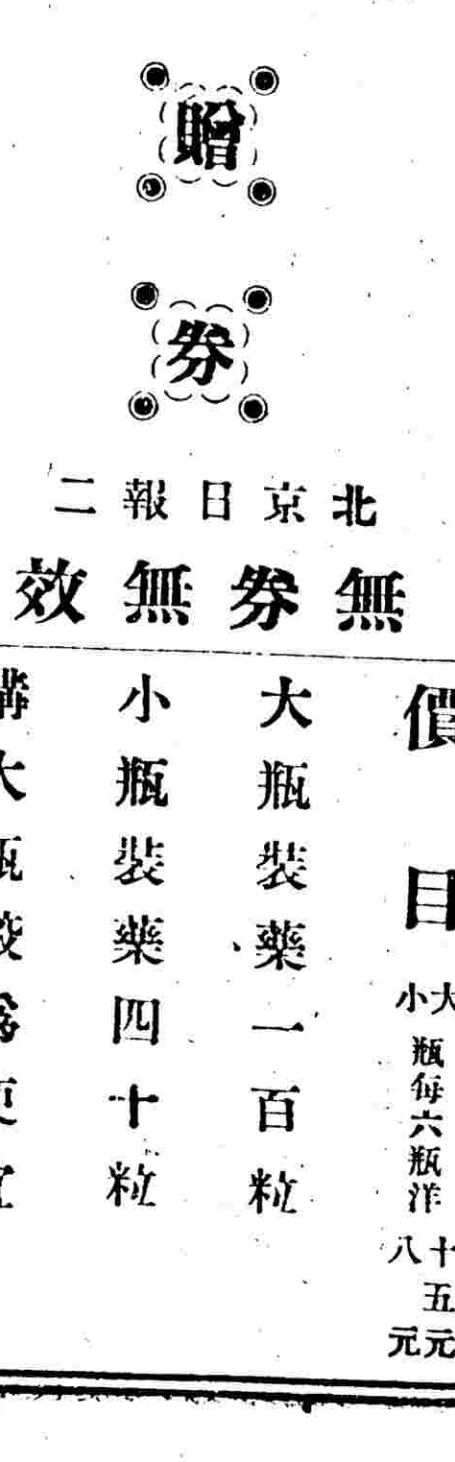 贈
券
北京日報二
無券無效
價目
大小瓶每六瓶洋十五元八元
大瓶裝藥一百粒
小瓶裝藥四十粒
購大瓶較為更宜